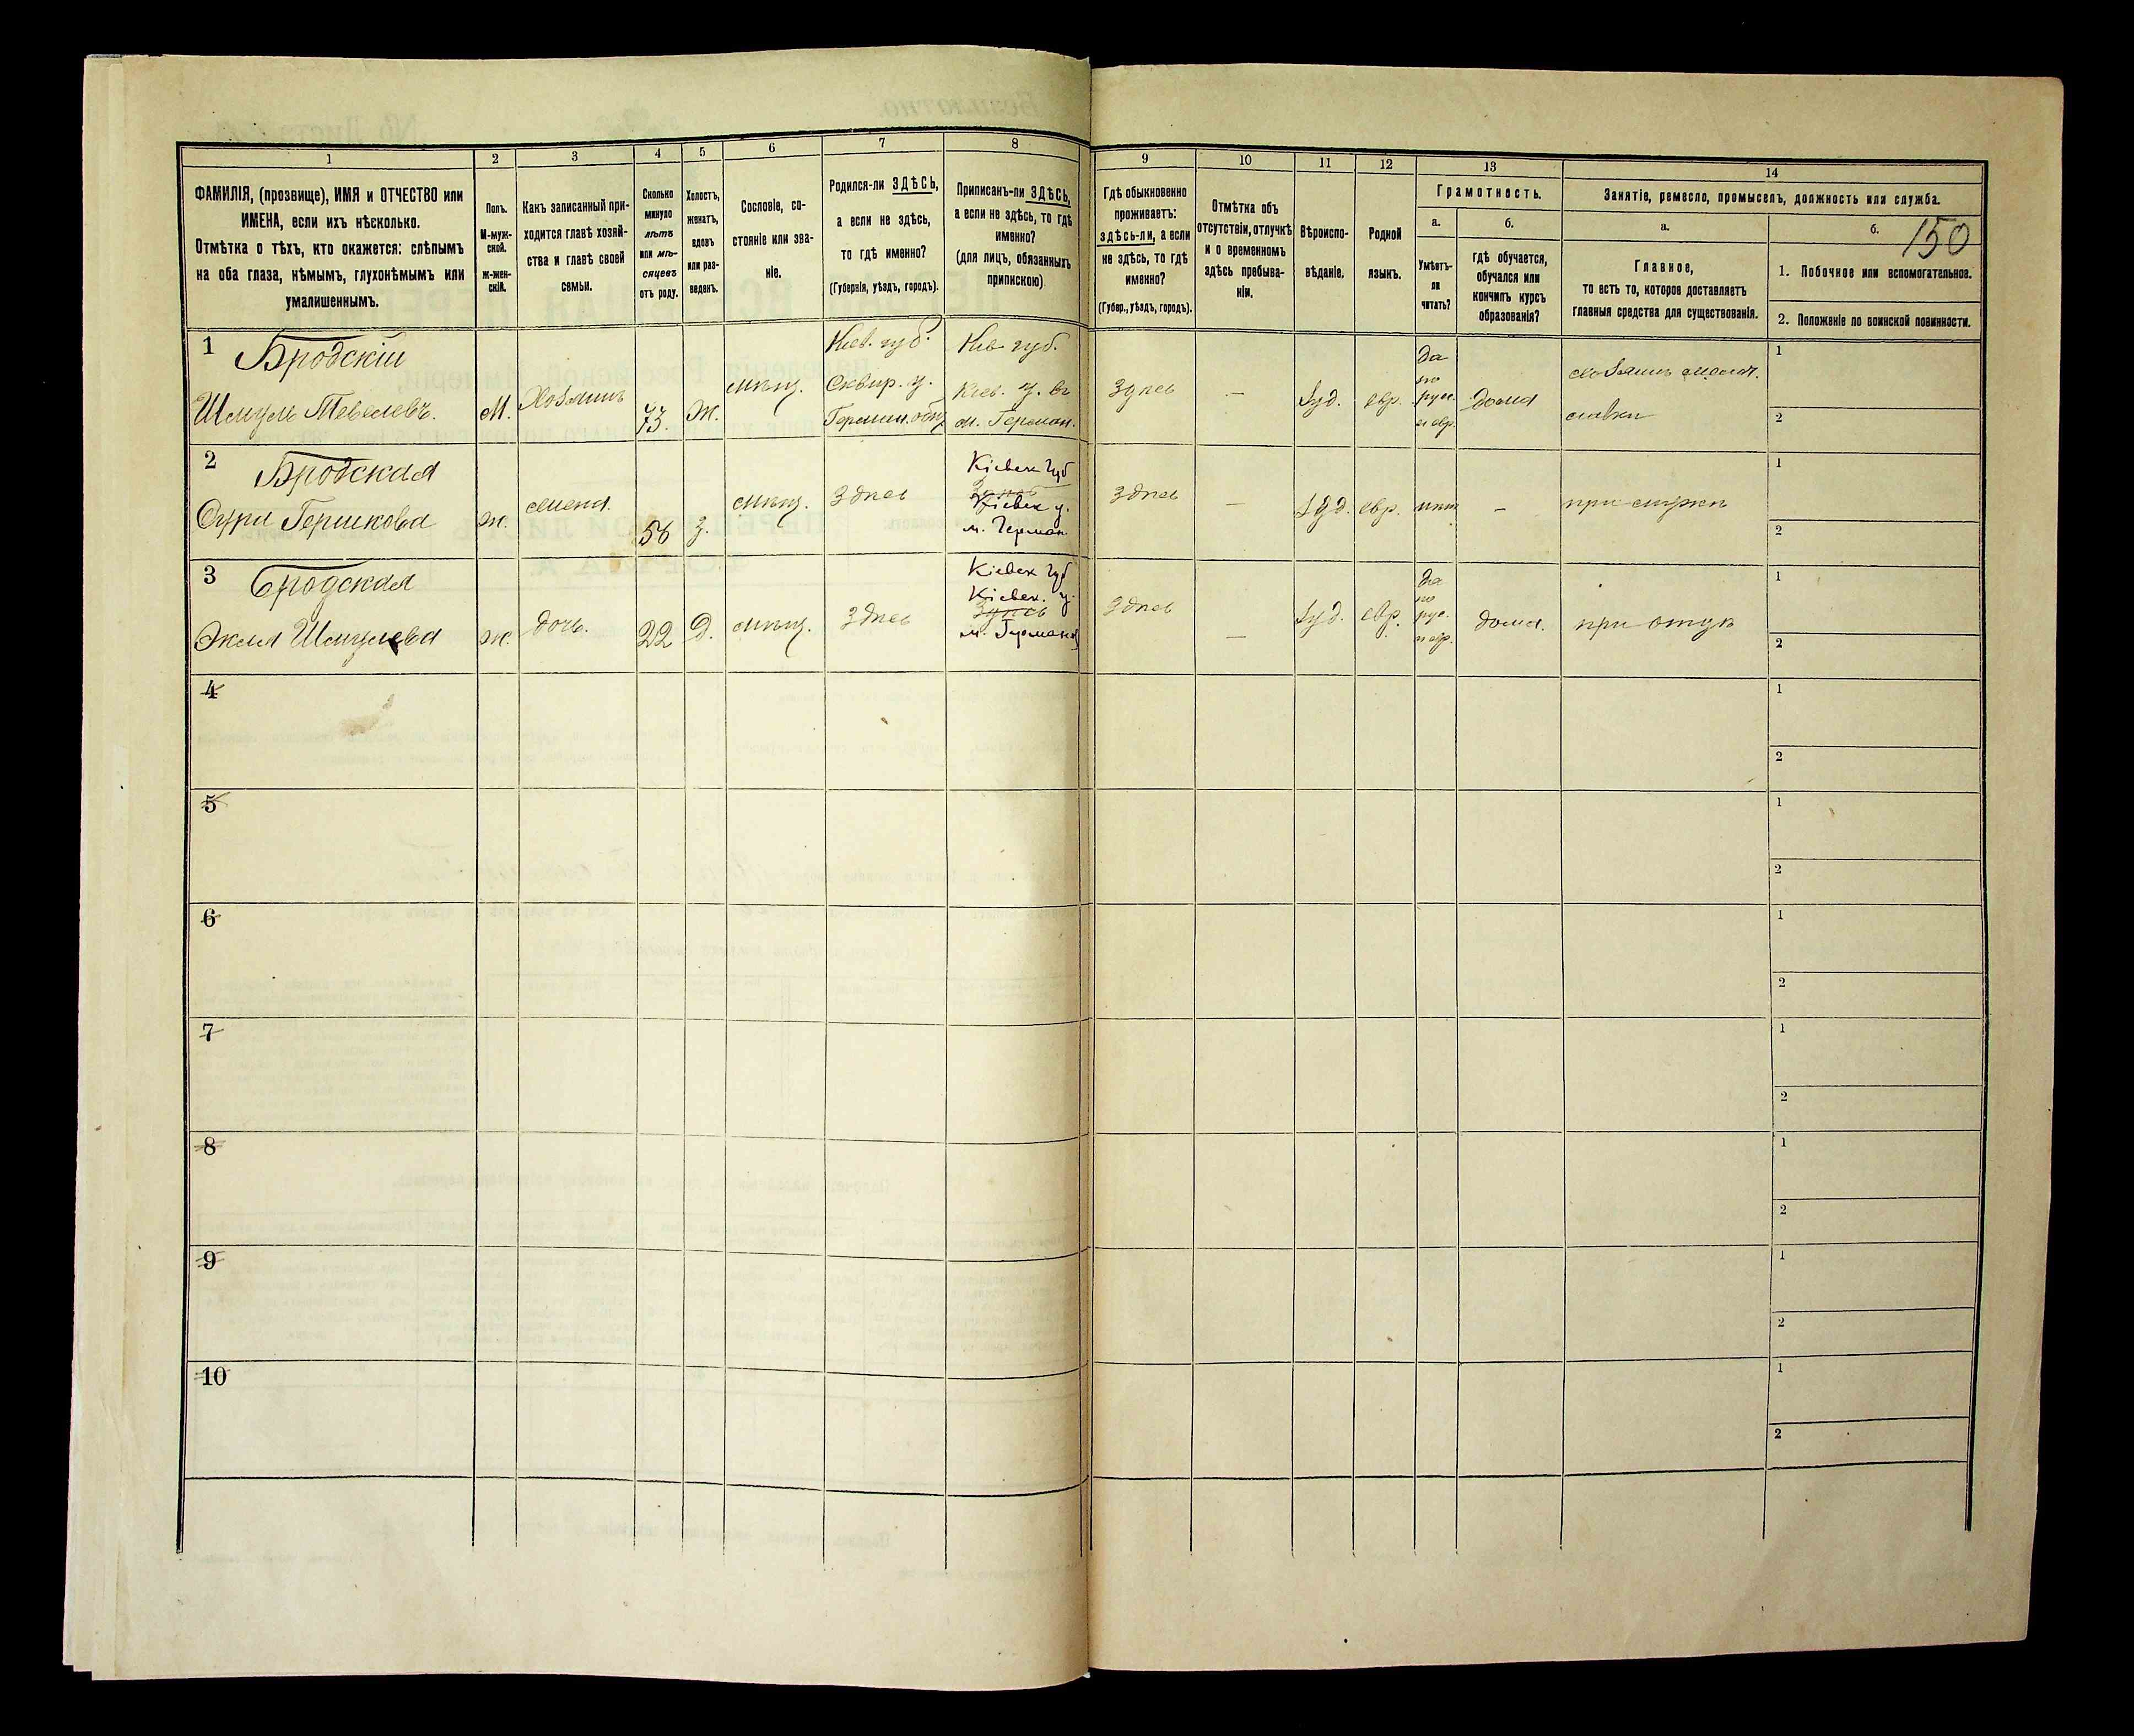 1 2 3 4 5 6 7 8 9 10 11 12 13 14
ФАМИЛІЯ, (прозвище), ИМЯ и ОТЧЕСТВО или
ИМЕНА, если ихъ нѣсколько.
Отмѣтка о тѣхъ, кто окажется: слѣпымъ
на оба глаза, нѣмымъ, глухонѣмымъ или
умалишеннымъ.
Полъ.
М-муж-
ской.
ж-жен-
скій.
Какъ записанный при-
ходится главѣ хозяй-
ства и главѣ своей
семьи.
Сколько
минуло
лѣтъ
или мѣ-
сяцевъ
отъ роду.
Холостъ,
женатъ,
вдовъ
или раз-
веденъ.
Сословіе, со-
стояніе или зва-
ніе.
Родился-ли ЗДѢСЬ,
а если не здѣсь,
то гдѣ именно?
(Губернія, уѣздъ, городъ).
Приписанъ-ли ЗДѢСЬ,
а если не здѣсь, то гдѣ
именно?
(для лицъ, обязанныхъ
припискою)
Гдѣ обыкновенно
проживаетъ:
здѣсь-ли, а если
не здѣсь, то гдѣ
именно?
(Губер., уѣздъ, городъ).
Отмѣтка объ
отсутствіи, отлучкѣ
и о временномъ
здѣсь пребыва-
ніи.
Вѣроиспо-
вѣданіе.
Родной
языкъ.
Грамотность.
а.
Умѣетъ-
ли
читать?
б.
гдѣ обучается,
обучался или
кончилъ курсъ
образованія?
Занятіе, ремесло, промыселъ, должность или служба.
а.
Главное,
то есть то, которое доставляетъ
главныя средства для существованія.
б. 150
1. Побочное или вспомогательное.
2. Положеніе по воинской повинности.
1 Бродскій
Шмуль Тевелевъ.
М.
Хозяинъ
73.
Ж.
мѣщ.
Кіев. губ.
Сквир. у.
Кіев губ.
Кіев. у. въ
м. Герман.
Здѣсь
—
Іуд.
евр.
Да
по
рус.
и евр.
дома
хозяинъ молоч.
лавки
1
2
2 Бродская
Сура Гершкова
ж.
жена.
56
З.
мѣщ.
Здѣсь
Кіевск губ
Здѣсь
Кіевск у.
м. Герман
Здѣсь
—
Іуд.
евр.
нѣт
—
при мужѣ
1
2
3 Бродская
Шмулева
ж.
дочь.
22
Д.
мѣщ.
Здѣсь
Кіевск губ
Кіевск. у.
Здѣсь
м. Герман
Здѣсь
—
Іуд.
евр.
Да
по
рус.
и евр.
дома.
при отцѣ
1
2
4
1
2
5
1
2
6
1
2
7
1
2
8
1
2
9
1
2
10
1
2